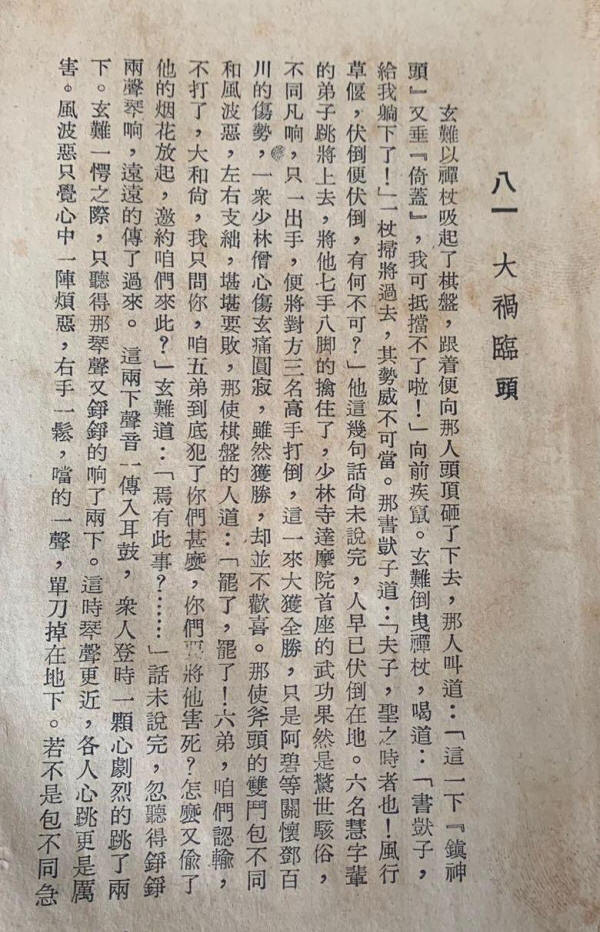 八一 大禍臨頭
玄難以禪杖吸起了棋盤，跟着便向那人頭頂砸了下去，那人叫道：「這一下『鎮神
頭』又垂『倚蓋』，我可抵擋不了啦！」向前疾竄。玄難倒曳禪杖，喝道：「書獃子，
給我躺下了！」一杖掃將過去，其勢威不可當。那書獃子道：「夫子，聖之時者也！風行
草偃，伏倒便伏倒，有何不可？」他這幾句話尙未說完，人早已伏倒在地。六名慧字輩
的弟子跳將上去，將他七手八脚的擒住了，少林寺達摩院首座的武功果然是驚世駭俗，
不同凡响，只一出手，便將對方三名高手打倒，這一來大獲全勝，只是阿碧等關懷鄧百
川的傷勢，一衆少林僧心傷玄痛圓寂，雖然獲勝，却並不歡喜。那使斧頭的雙鬥包不同
和風波惡，左右支絀，堪堪要敗，那使棋盤的人道：「罷了，罷了！六弟，咱們認輸，
不打了，大和尙，我只問你，咱五弟到底犯了你們甚麼，你們要將他害死？怎麼又偷了
他的烟花放起，邀約咱們來此？」玄難道：「焉有此事？……」話未說完，忽聽得錚錚
兩聲琴响，遠遠的傳了過來。這兩下聲音一傳入耳鼓，衆人登時一顆心劇烈的跳了兩
下。玄難一愕之際，只聽得那琴聲又錚錚的响了兩下。這時琴聲更近，各人心跳更是厲
害。風波惡只覺心中一陣煩惡，右手一鬆，噹的一聲，單刀掉在地下。若不是包不同急